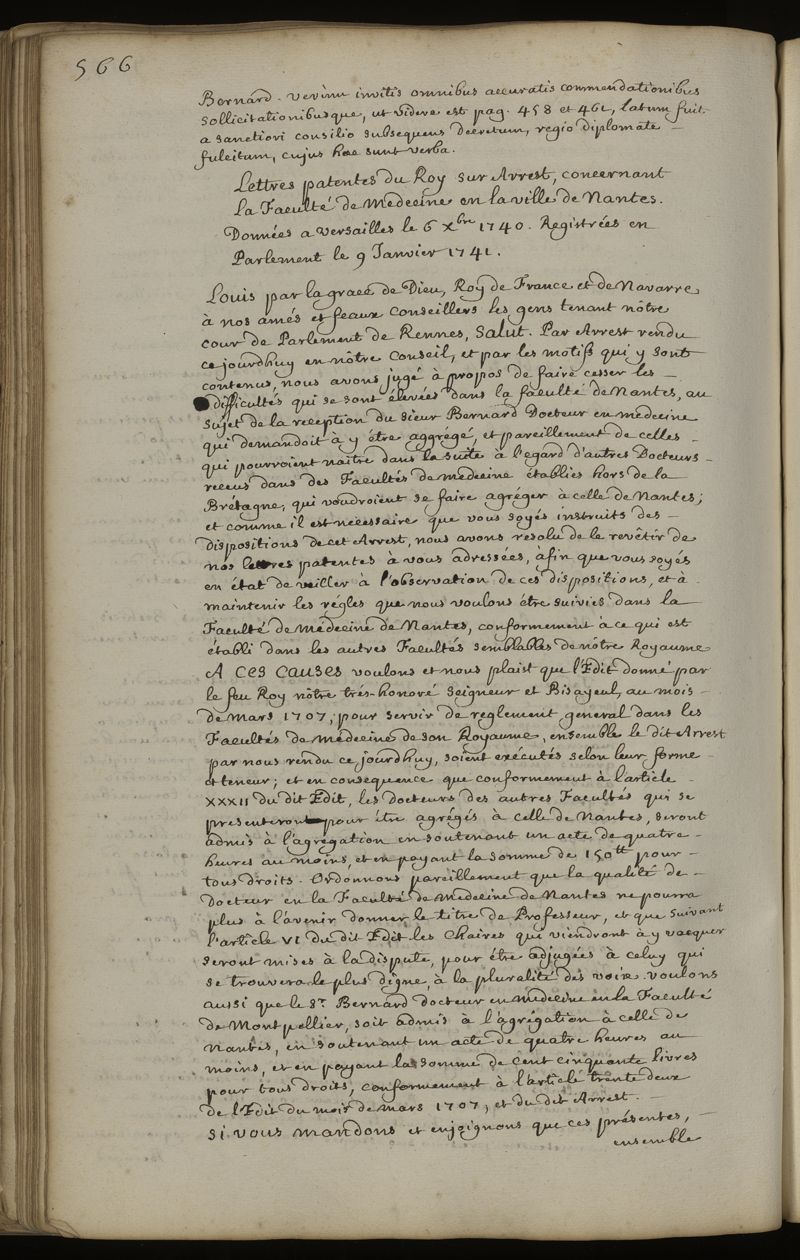 566
Bernard. verùm invitis omnibus accuratis commendationibus
sollicitationibusque, ut videre est pag. 458 et 461, latum fuit
a sanctiori consilio subsequens decretum, regio diplomate
fulcitum, cujus hæc sunt verba.
Lettres patentes du Roy sur Arrest, concernant
la Faculté de Medecine en la ville de Nantes.
Données a versailles le 6 Xbre 1740. Registrées en
Parlement le 9 Janvier 1741.
Louis par la grace de Dieu, Roy de France et de Navarre
à nos amés et feaux Conseillers les gens tenant nôtre
cour de Parlement de Rennes, Salut. Par Arrest rendu
ce jourdhuy en nôtre Conseil, et par les motifs qui y sont
contenus, nous avons jugé à propos de faire cesser les
difficultés qui se sont élevées dans la faculté de Nantes, au
sujet de la reception du sieur Bernard Docteur en medecine
qui demandoit à y étre aggrégé, et pareillement de celles
qui pourroient naitre dans la suite à l'egard d'autres Docteurs
receus dans des Facultés de medecine établies hors de la
Brétagne, qui voudroient se faire agréger à celle de Nantes;
et comme il est nécessaire que vous soyés instruits des
dispositions de cet Arrest, nous avons resolu de le revêtir de
nos lettres patentes à vous adressées, àfin que vous soyés
en état de veiller à l'observation de ces dispositions, et à
maintenir les régles que nous voulons étre suivies dans la
Faculté de Médecine de Nantes, conformement à ce qui est
établi dans les autres Facultés semblables de nôtre Royaume
A CES CAUSES voulons et nous plaist que l'Edit donné par
le feu Roy nôtre trés-honoré seigneur et Bisayeul, au mois
de mars 1707, pour servir de reglement general dans les
Facultés de médecine de son Royaume, ensemble le dit Arrest
par nous rendu ce jourdhuy, soient exécutés selon leur forme
et teneur; et en consequence que conformement à l'article
XXXII du dit Edit, les docteurs des autres Facultés qui se
presenteront pour étre agrégés à celle de Nantes, seront
admis à l'agrégation en soutenant un acte de quatre
heures au moins, et en payant la somme de 150tt pour
tous droits. Ordonnons pareillement que la qualité de
Docteur en la Faculté de Medecine de Nantes ne pourra
plus à l'avenir donner le titre de Professeur, et que suivant
l'article VI du dit Edit les Chaires qui viendront à y vacquer
seront mises à la dispute, pour étre adjugées à celuy qui
se trouvera le plus digne, à la pluralité des voix. voulons
aussi que le Sr. Bernard docteur en médecine en la Faculté
de Montpellier, soit admis à l'agrégation à celle de
Nantes, en soutenant un acte de quatre heures au
moins, et en payant la somme de cent cinquante livres
pour tous droits, conformement à l'article trente deux
de l'Edit du mois de mars 1707, et du dit Arrest.
Si vous mandons et enjoignons que ces présentes,
ensemble